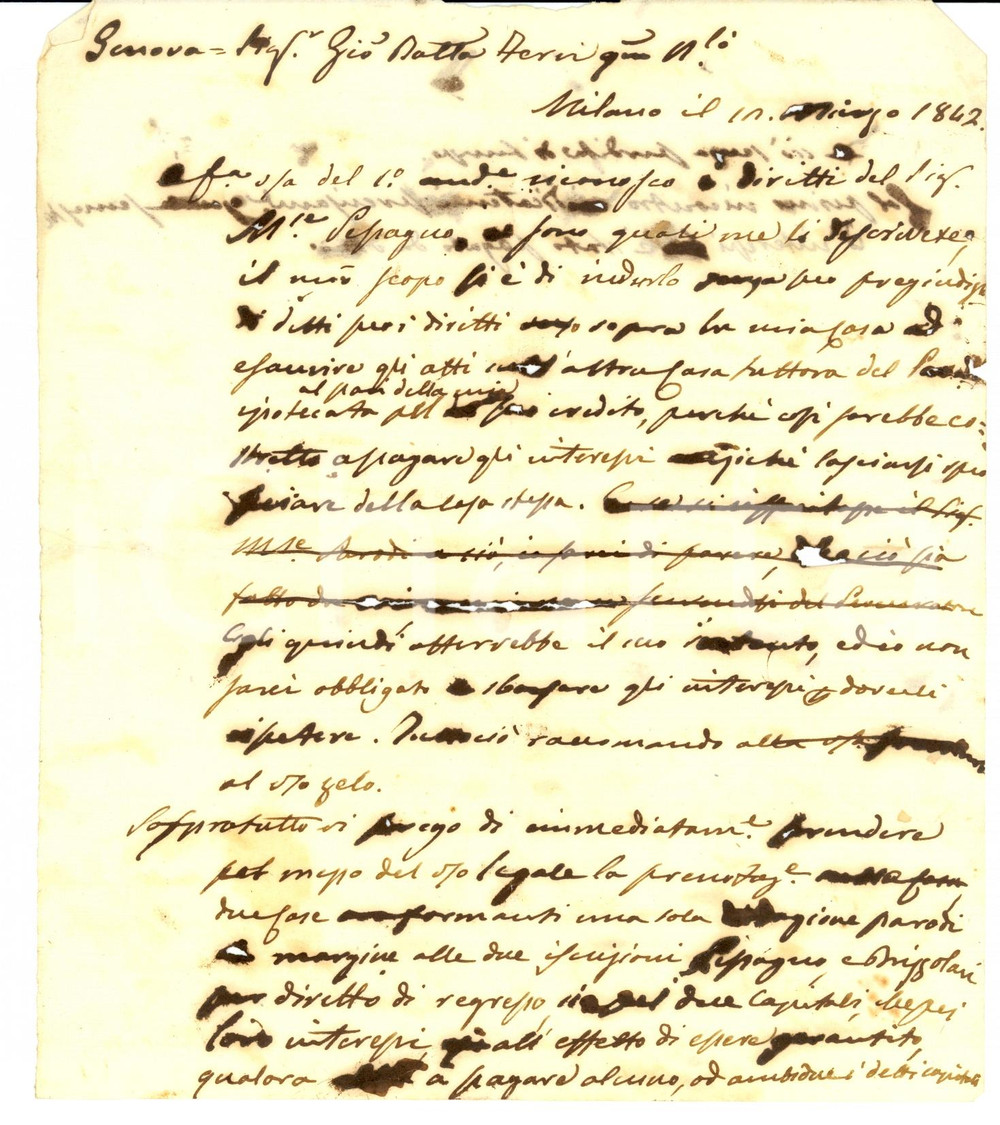 Genova = Sig.r Gio Batta Terni qm N.lò
Milano il 12. Marzo 1842.
a f.a vsa del 1.o and.e riconosco i diritti del Sig.
M.se Pessagno, e sono quali me li descrivete,
il mio scopo si è di indurlo senza suo pregiudizio
di detti suoi diritti sopra la mia casa ad
esaurire gli atti sull'altra Casa tuttora del
al pari della mia
ipotecata pel suo credito, perchè così sarebbe co-
stretto a pagare gli interessi anzichè lasciarsi spo
gliare della casa stessa. il Sig.
M.se Parodi a ciò, sarei di parere, che ciò sia
fatto da del Procuratore
Egli quindi otterrebbe il suo intento, ed io non
sarei obbligato a sborsare gli interessi e doverli
ripetere. Tutto ciò raccomando alla
al vso zelo.
Soprattutto vi prego di immediatam.e prendere
pel mezzo del vso legale la prenotaz.e
due case formanti una sola ragione Parodi
a margine alle due iscrizioni Pessagno, e Brizzolari
per diritto di regresso, sì dei due Capitali, che pei
loro interessi, all'effetto di essere garantito,
qualora a pagare alcuno, od ambidue i detti capitali